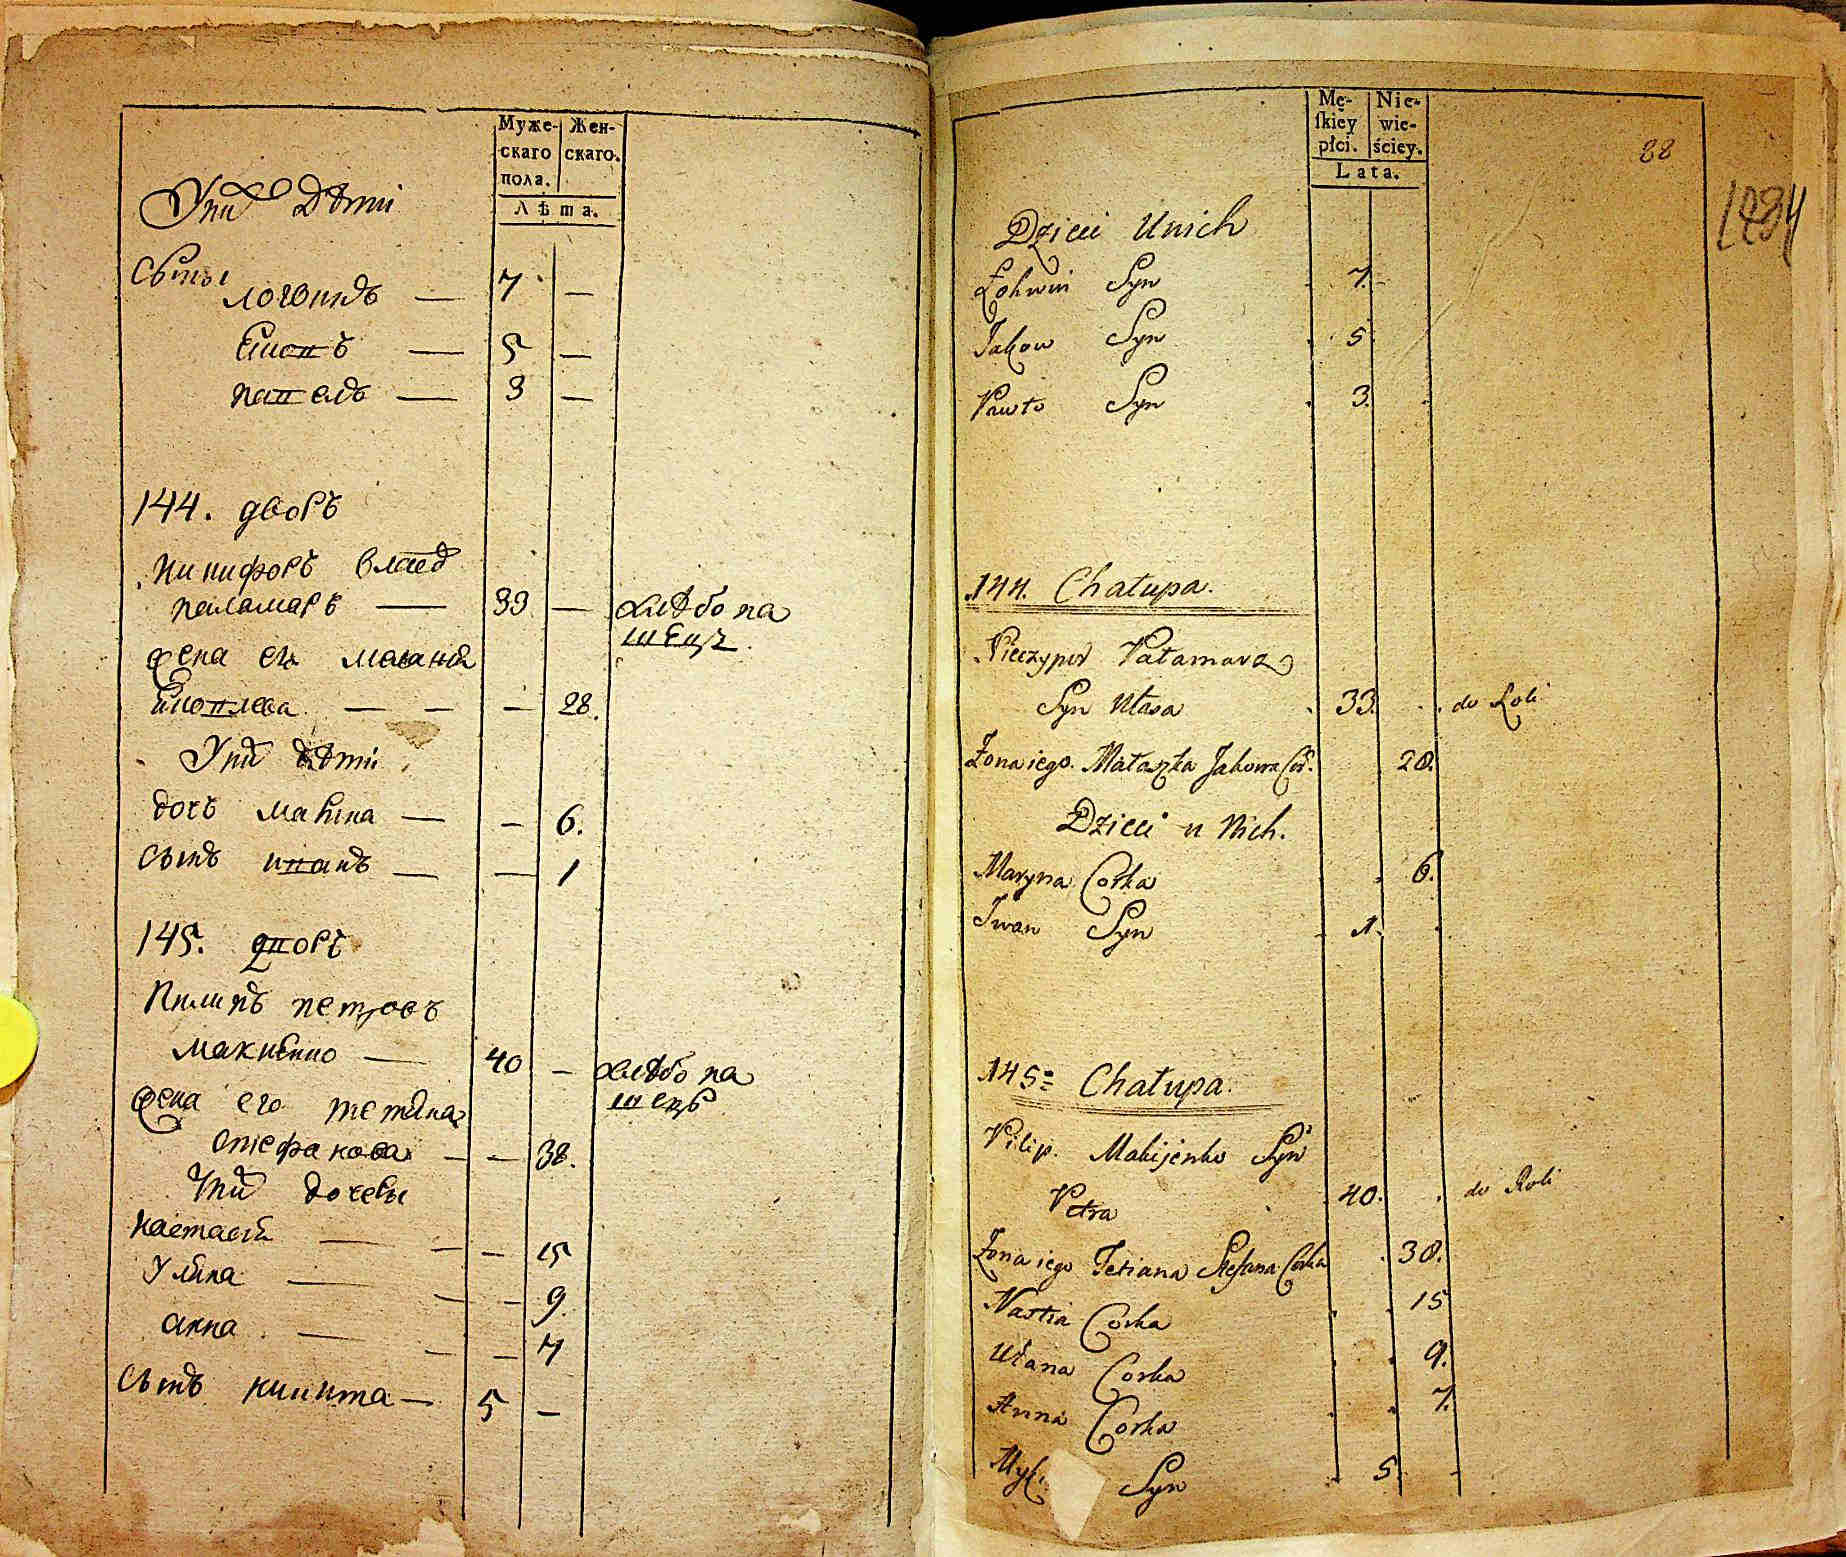 Муже- Жен-
скаго скаго.
пола.
Лѣта.
У них дѣти
Сыны
логвинъ — 7 —
Яковъ — 5 —
павелъ — 3 —
144. дворъ
Никифоръ Власов
паламаръ — 33 — хлѣбопа
шецъ
жена его маланія
Яковлева — — — 28.
У них дѣти
дочь марина — — 6.
Сынъ иванъ — — 1
145. дворъ
Пилипъ петровъ
макіенко — 40 — хлѣбопа
шецъ
жена его тетяна
Стефанова — — 38.
У них дочеры
настасія — — — 15
Уляна — — — 9.
анна — — — 7
Сынъ никита — 5 —
Mę- Nie-
skiey wie-
płci. ściey.
Lata.
88
1484
Dzieci U nich
Łohwin Syn 7.
Jakow Syn 5
Pawło Syn 3.
144. Chałupa.
Nieczypor Pałamarz
Syn Własa 33. do Roli
Żona iego Małaszka Jakowa Cór. 28.
Dzieci u Nich.
Maryna Corka 6.
Iwan Syn 1.
145 Chałupa.
Pilip. Makijenko Syn
Petra 40. do Roli
Żona iego Tetiana Stefana Corka 38.
Nastia Corka 15
Ułana Corka 9.
Anna Corka 7.
Syn 5